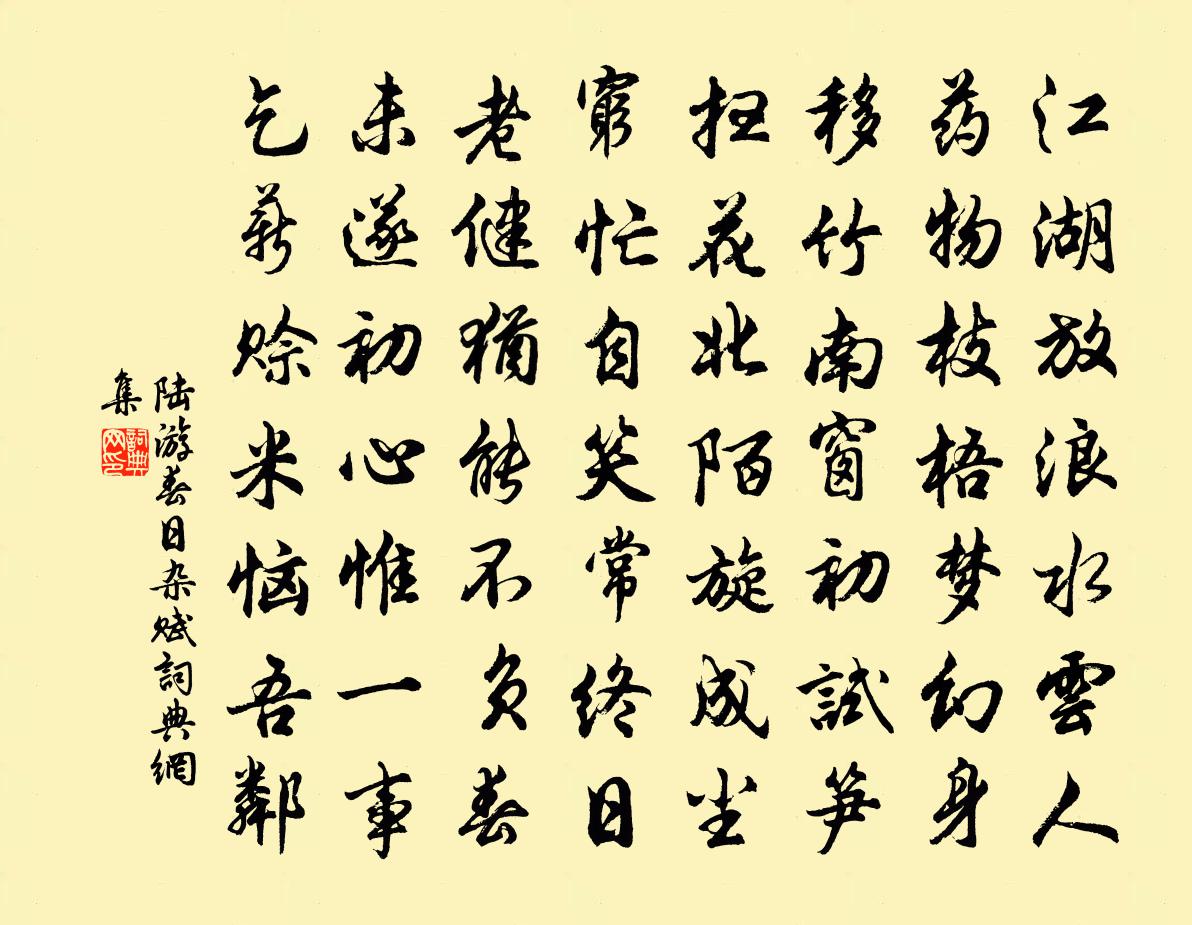 江湖放浪水雲人
药物枝梧梦幻身
移竹南窗初試笋
花北陌旋成尘
窮忙自笑常终日
老健猶能不负春
未遂初心惟一事
乞薪赊米恼吾鄰
陆游春日杂赋詞典網
集
詞典网印